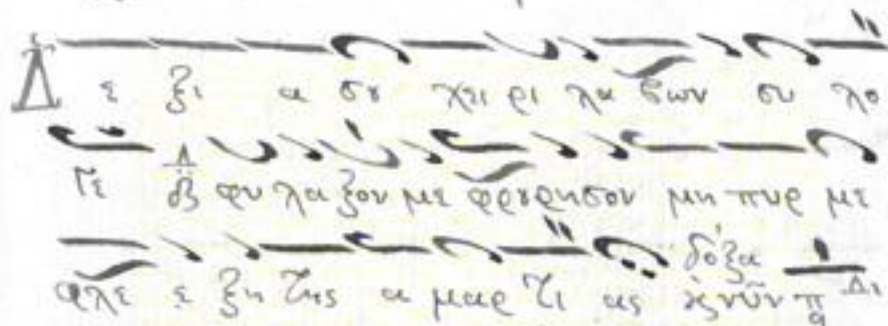 Δ ε ξι α σȣ χει ρι λα βων συ λο
γε φυ λα ξον με φρȣρησον μη πυρ με
φλε ξη της α μαρ τι ας δόξα ϗ νῦν πα Δι